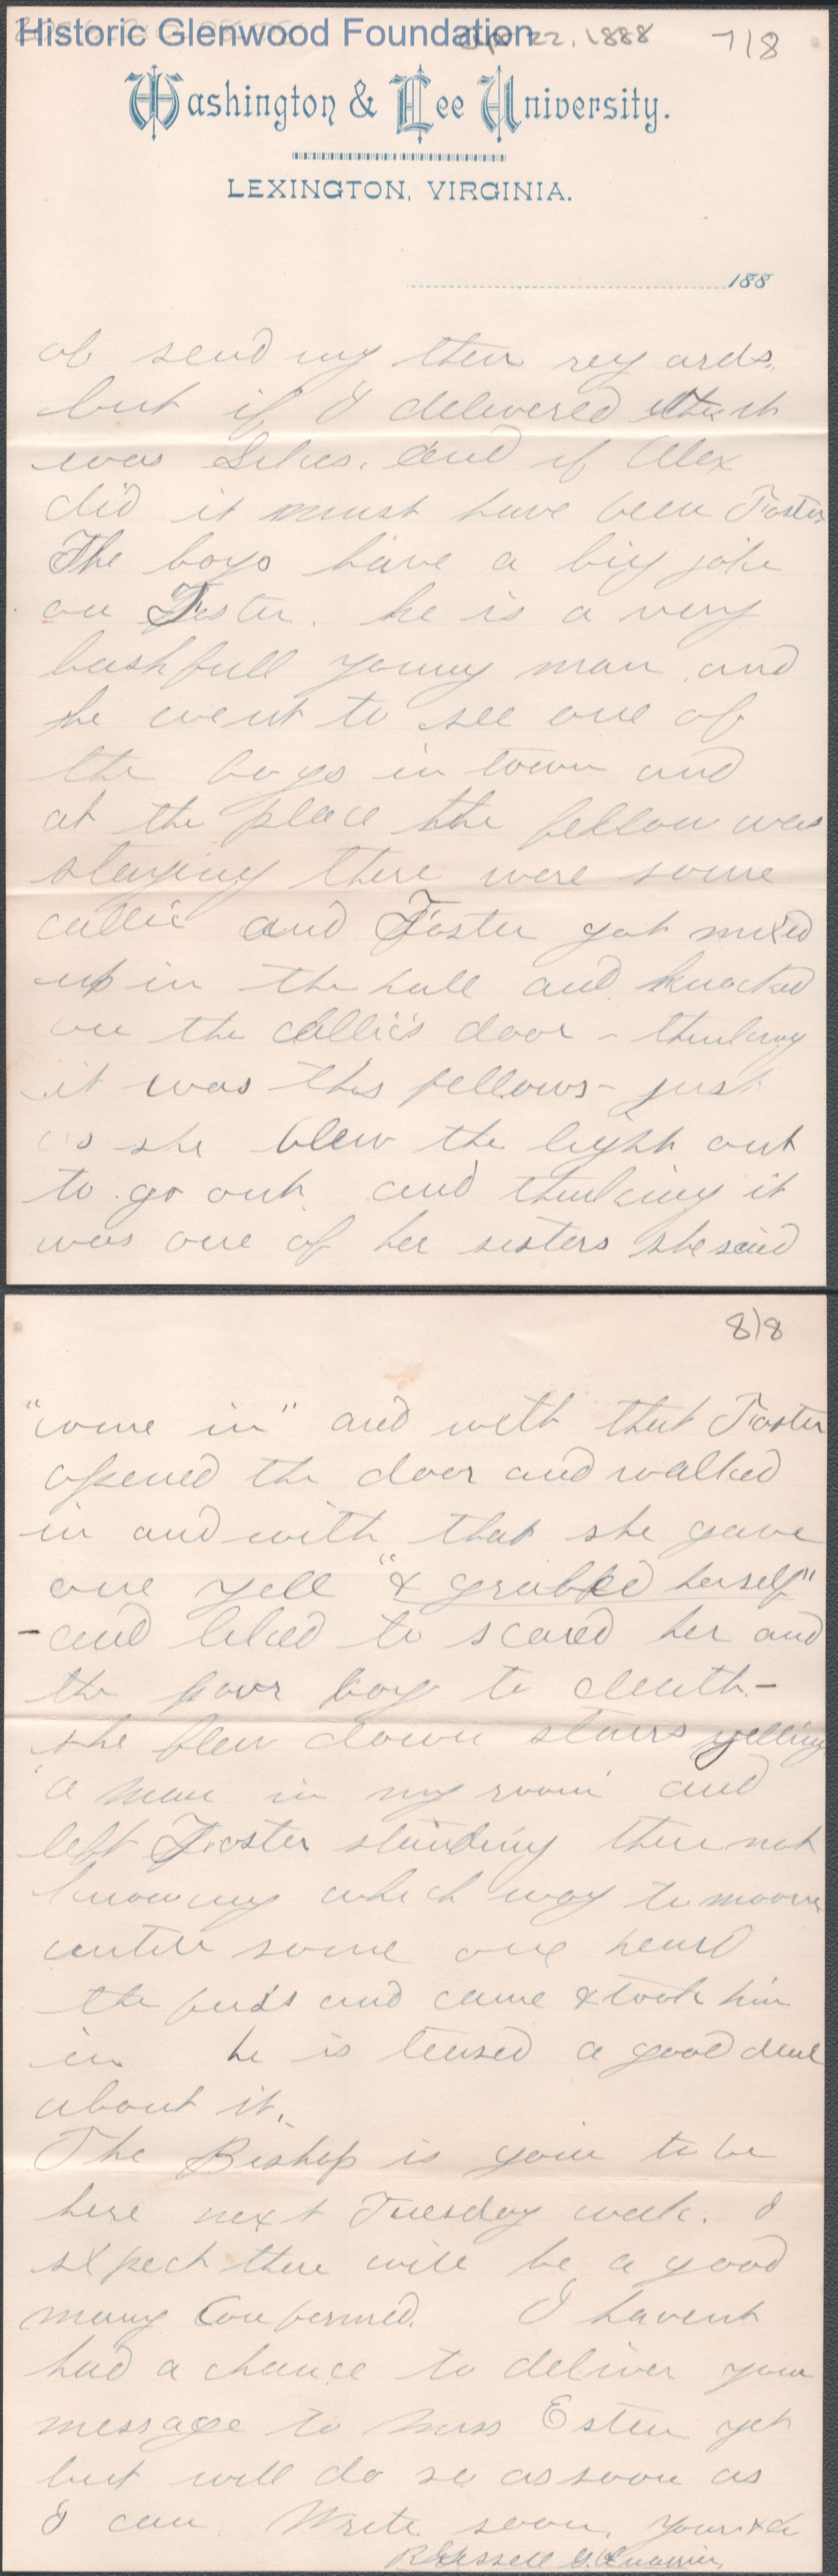 Historic Glenwood Foundation
22, 1888 7/8
Washington & Lee University.
LEXINGTON, VIRGINIA.
188
of sending their regards,
but if I delivered it
was Liles. and if Alex
did it must have been Foster
The boys have a big joke
on Foster. he is a very
bashfull young man, and
he went to see one of
the boys in town and
at the place the fellow was
staying there were some
callie and Foster got mixed
up in the hall and knocked
on the callie's door - thinking
it was this fellows - just
as she blew the light out
to go out, and thinking it
was one of her sisters she said
8/8
"come in" and with that Foster
opened the door and walked
in and with that she gave
one yell "& grabbed herself"
- and liked to scared her and
the poor boy to death. -
she flew down stairs yelling
"a man in my room" and
left Foster standing there not
knowing which way to moove
untill some one heard
the fuss and came & took him
in he is teased a good deal
about it.
The Bishop is goin to be
here next Tuesday week. I
expect there will be a good
many Confermed. I havent
had a chance to deliver your
message to Miss Esten yet
but will do so as soon as
I can. Write soon. Yours &c
Russell G. Quarrier